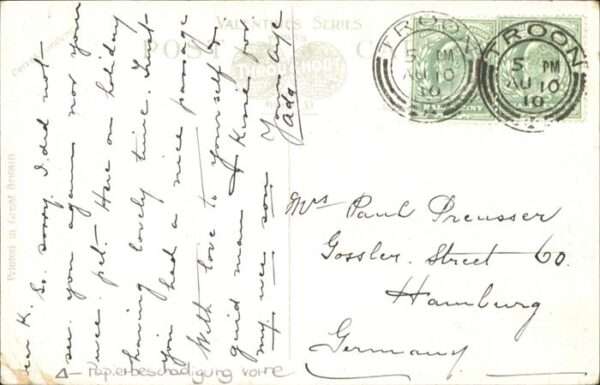 VALENTINE'S SERIES
POST
Printed in Great Britain
K. So sorry I did not
see you again nor your
wee pet - Have on holiday
having lovely time. Trust
you had a nice passage
With love to yourself &
guid man & Kind for
my wee son
Yours aye
Ada
TROON
5 PM
AU 10
10
TROON
5 PM
AU 10
10
Mrs Paul Preusser
Gossler Street 60.
Hamburg
Germany
Δ - Papierbeschädigung vorne